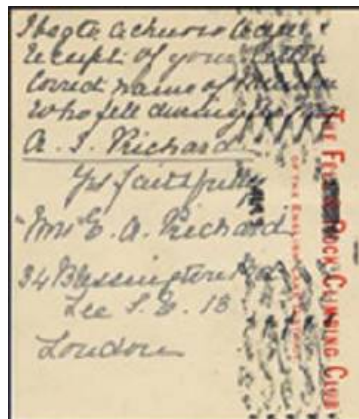 I beg to acknowledge
receipt of your letter
Correct name of
who fell during
A. J. Prichard
Yrs faithfully
"Mrs" E. A. Prichard
34 Blessington Rd
Lee S.E. 13
London
THE FELL & ROCK CLIMBING CLUB
OF THE ENGLISH LAKE DISTRICT